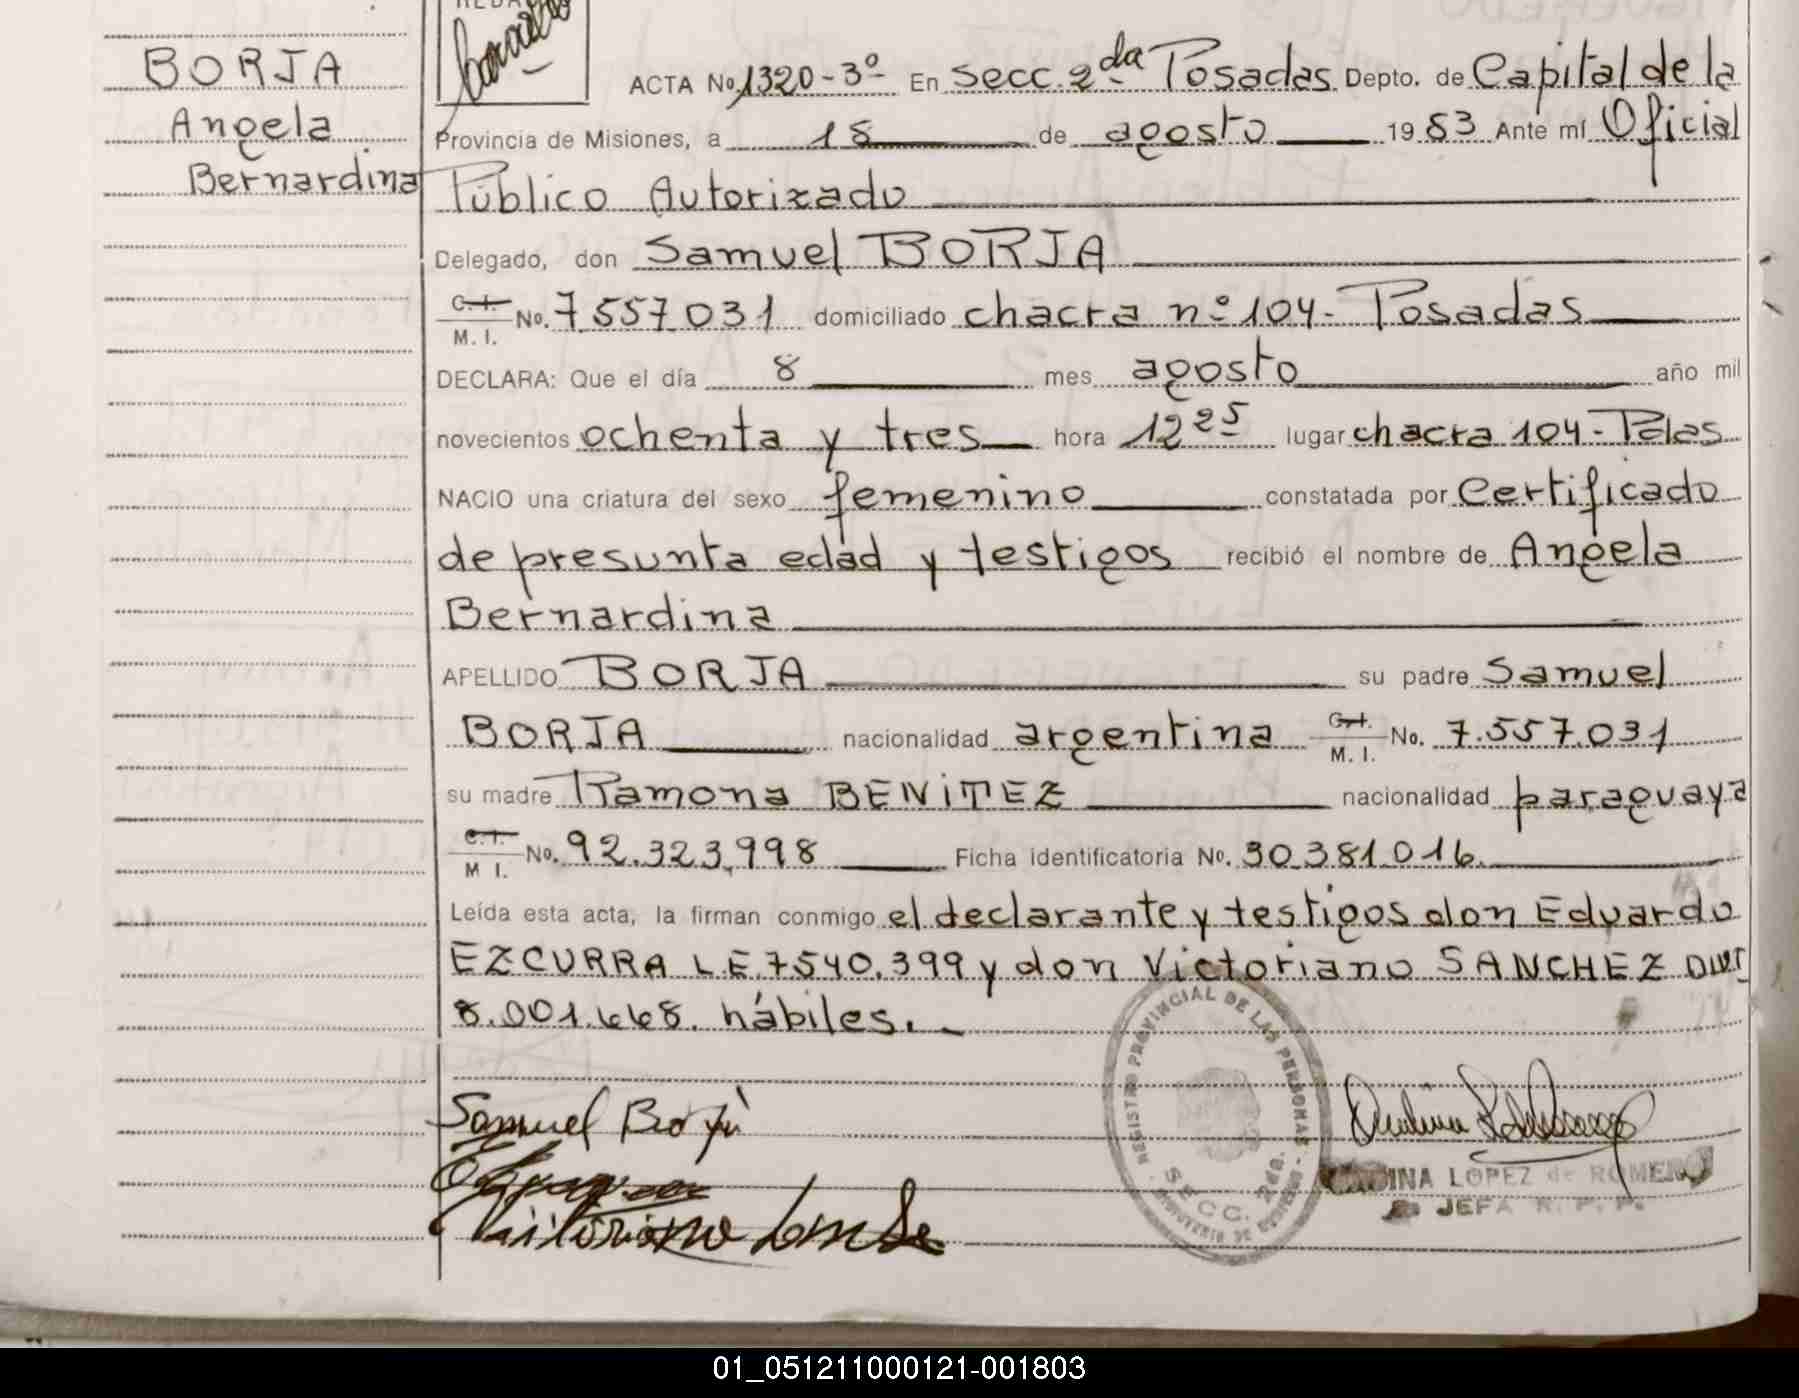 BORJA
Angela
Bernardina
ACTA No. 1320-3º En Secc. 2da Posadas Depto. de Capital de la
Provincia de Misiones, a 18 de agosto 1983 Ante mí Oficial
Público Autorizado
Delegado, don Samuel BORJA
C. I. M. I. No. 7.557.031 domiciliado chacra nº 104 - Posadas
DECLARA: Que el día 8 mes agosto año mil
novecientos ochenta y tres hora 12 25 lugar chacra 104 - Pdas
NACIO una criatura del sexo femenino constatada por Certificado
de presunta edad y testigos recibió el nombre de Angela
Bernardina
APELLIDO BORJA su padre Samuel
BORJA nacionalidad argentina C. I. M. I. No. 7.557.031
su madre Ramona BENITEZ nacionalidad paraguaya
C. I. M I. No. 92.323.998 Ficha identificatoria No. 30.381.016.
Leída esta acta, la firman conmigo el declarante y testigos don Eduardo
EZCURRA L.E. 7540.399 y don Victoriano SANCHEZ DNI
8.001.668. hábiles.
REGISTRO PROVINCIAL DE LAS PERSONAS
SECC. 2da.
Samuel Borja
LOPEZ de ROMERO
JEFA R. P. P.
01_051211000121-001803